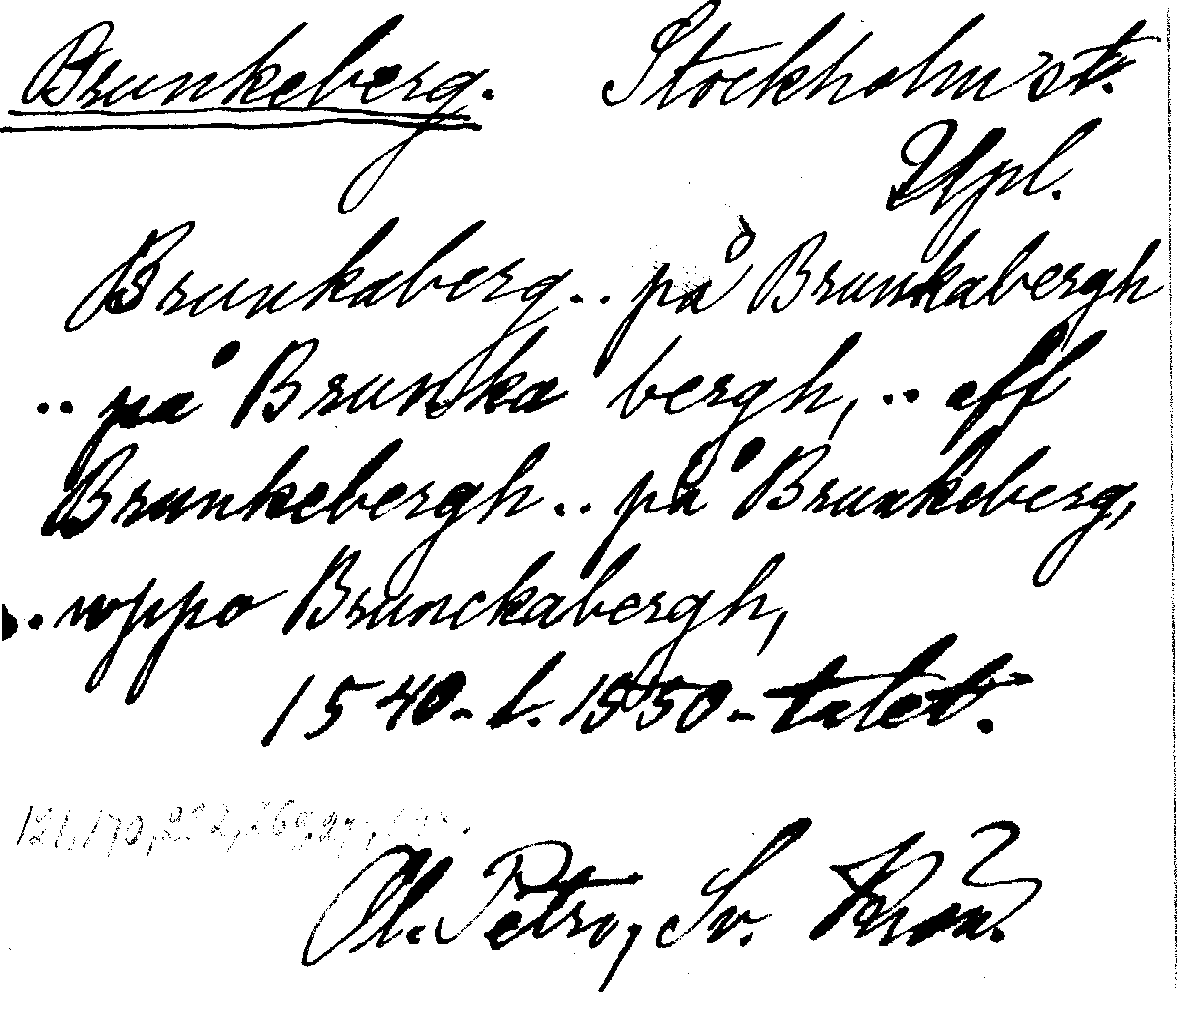 Brunkeberg. Stockholms st.
Upl.
Brunkaberg .. på Brunkabergh
.. på Brunka bergh, .. aff
Brunkebergh .. på Brunkeberg,
.. uppo Brunckabergh,
1540- t. 1550-talet.
121, 170, 222, 269,
Ol. Petro, Sv. Krön.